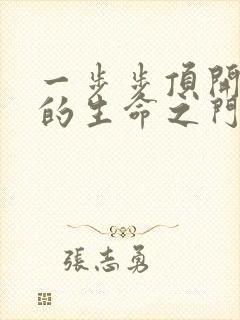 一步步頂開
的生命之門
張志勇